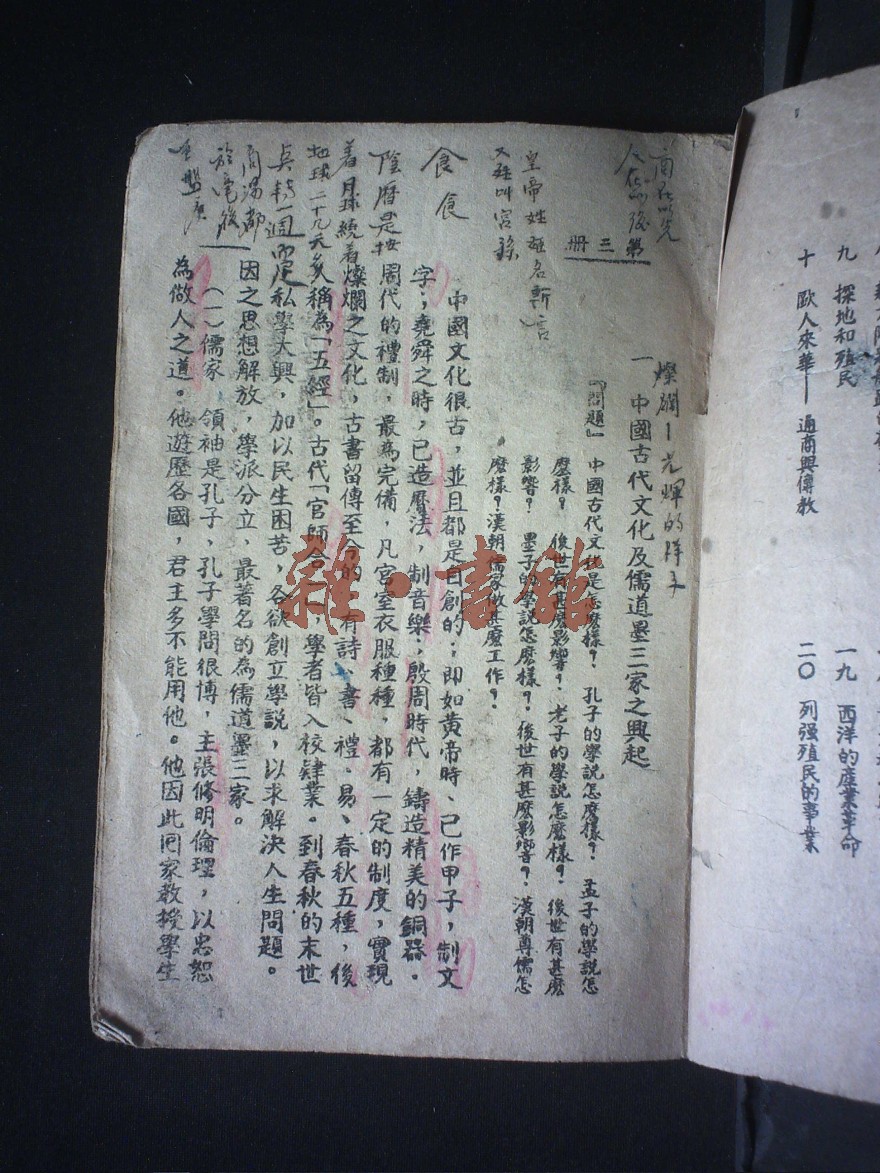 九 探地和殖民
十 歐人來華——通商與傳教
一九 西洋的產業革命
二〇 列强殖民的事業
三册
燦斕—光輝的样子
一 中國古代文化及儒道墨三家之興起
『問題』 中國古代文化是怎麽樣？ 孔子的學説怎麽樣？ 孟子的學説怎
麽樣？ 後世有甚麽影響？ 老子的學説怎麽樣？ 後世有甚麽
影響？ 墨子的學説怎麽樣？ 後世有甚麽影響？ 漢朝尊儒怎
麽樣？漢朝儒家做甚麽工作？
中國文化很古，並且都是自創的；即如黄帝時、已作甲子，制文
字；堯舜之時，已造曆法，制音樂；殷周時代，鑄造精美的銅器。
周代的禮制，最為完備，凡宮室衣服種種，都有一定的制度，實現
燦斕之文化，古書留傳至今的，有詩、書、禮、易、春秋五種，後
人稱為「五經」。古代「官師合一」，學者皆入校肄業。到春秋的末世
私學大興，加以民生困苦，各欲創立學説，以求解決人生問題。
因之思想解放，學派分立，最著名的為儒道墨三家。
（一）儒家 領袖是孔子，孔子學問很博，主張修明倫理，以忠恕
為做人之道。他遊歷各國，君主多不能用他。他因此囘家教授學生
皇帝姓
食食
陰曆是按
着月球繞着
地球二十九天
商湯都
雜·書館